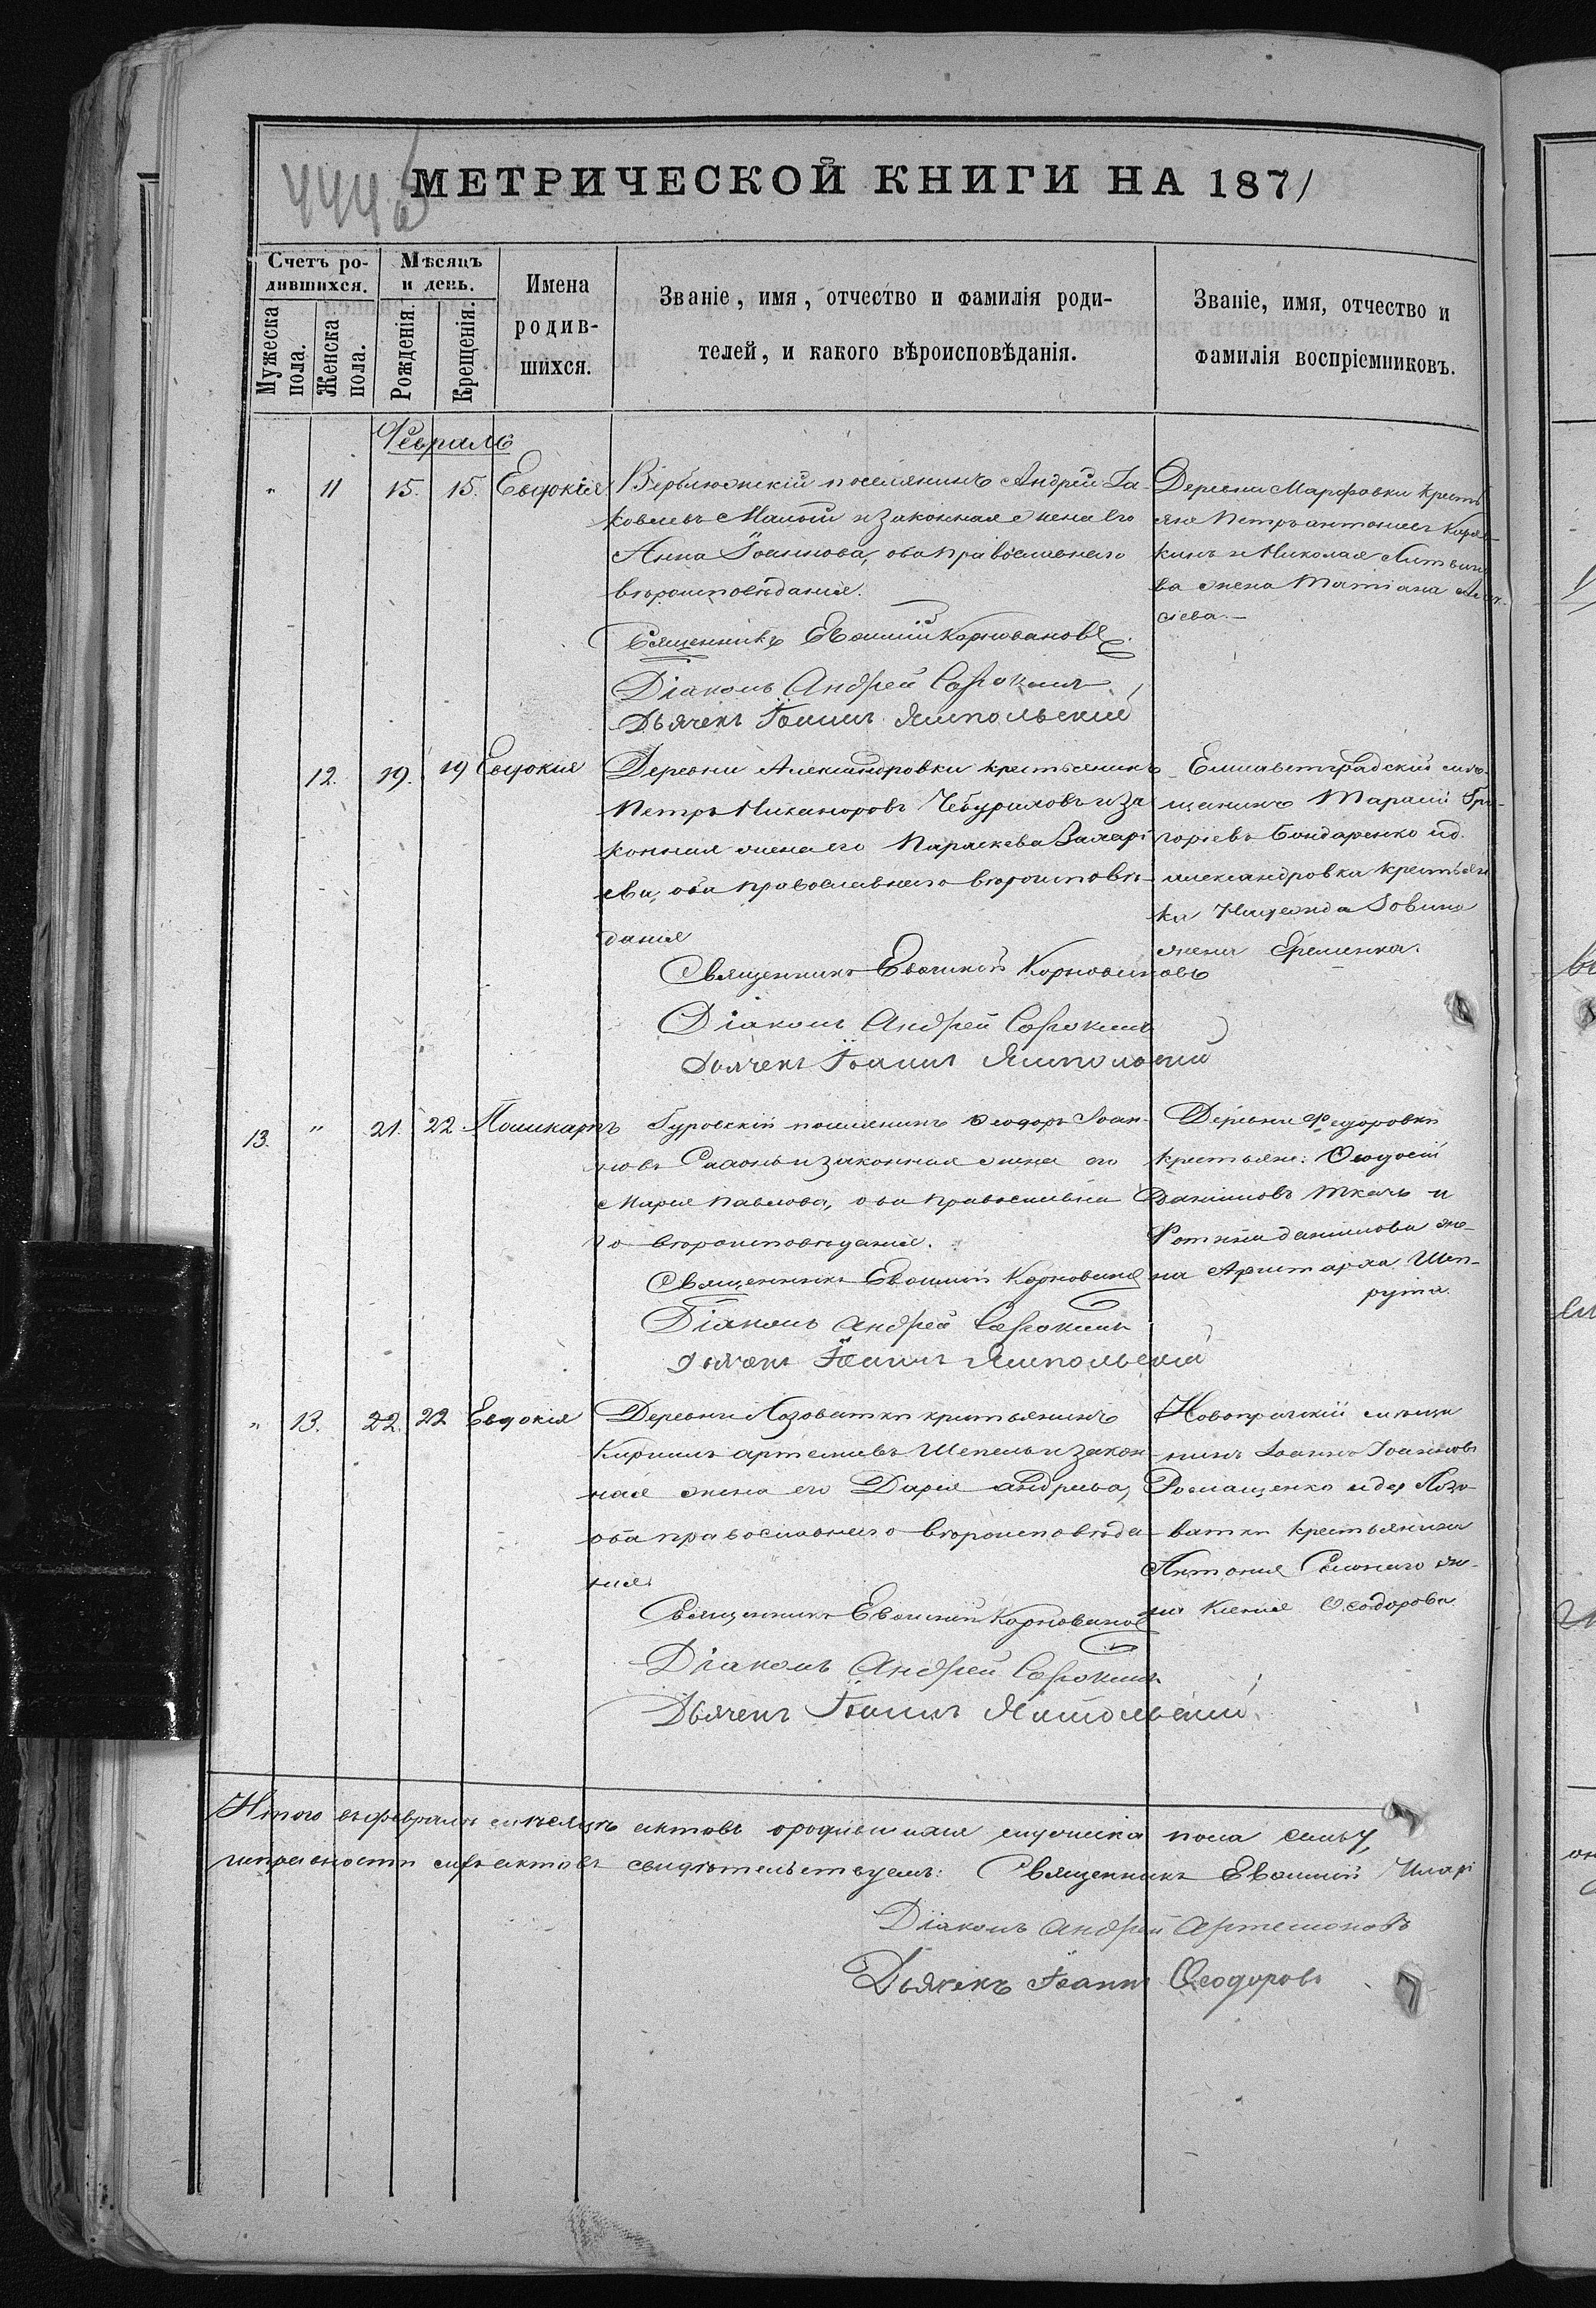 МЕТРИЧЕСКОЙ КНИГИ НА 1871
Счетъ ро-
дившихся.
Мѣсяцъ
и день.
Имена
родив-
шихся.
Званіе, имя, отчество и фамилія роди-
телей, и какого вѣроисповѣданія.
Званіе, имя, отчество и
фамилія воспріемниковъ.
Мужеска
пола.
Женска
пола.
Рожденія.
Крещенія.
Февраль
" 11 15. 15. Евдокія
Верблюжскій поселянинъ Андрей Іа-
ковлевъ Малый и законная жена его
Анна Іоаннова, оба православнаго
вѣроисповѣданія.
Священникъ Евѳимій Корнованов
Діаконъ Андрей Сорокинъ
Дьячекъ Іоаннъ Ямпольскій
Деревни Марфовки кресть
яне Петръ антоніевъ
кинъ и Николая Литвин
ва жена Татіана
сіева.—
12. 19. 19 Евдокія
Деревни Александровки крестьянинъ
Петръ Никаноровъ и за
конная жена его Параскева Захарі
ева, оба православнаго вѣроисповѣ-
данія
Священникъ Евѳимій Корновановъ
Діаконъ Андрей Сорокинъ
Дьячекъ Іоаннъ Ямпольскій
Елисаветградскій мѣ-
щанинъ Тарасій Гри-
горіевъ Бондаренко и д.
александровки крестьян
ка
жена Еременка.
13. " 21. 22 Поликарпъ
Гуровскій поселянинъ Ѳеодоръ Іоан-
новъ и законная жена его
Марія Павлова, оба православна
го вѣроисповѣданія.
Священникъ Евѳимій Корнованов
Діаконъ Андрей Сорокинъ
Дьячекъ Іоаннъ Ямпольскій
Деревни Федоровки
крестьяне: Ѳеодосій
Даніиловъ Ткачъ и
Фотинія даниилова же-
на Аристарха Шеп-
рута.
" 13. 22. 22 Евдокія
Деревни Лозоватки крестьянинъ
Кириллъ артеміевъ Шепель и закон
ная жена его Дарія андреева,
оба православнаго вѣроисповѣда
нія.
Священникъ Евѳимій Корнованов
Діаконъ Андрей Сорокинъ
Дьячекъ Іоаннъ Ямпольскій
Новопражскій мѣща
нинъ Іоаннъ Іоанновъ
и дер Лозо-
ватки крестьянина
Антонія же-
на Ксенія Ѳеодорова
Итого въ февралѣ мѣсяцѣ актовъ о родившихся мужеска пола
исправности сихъ актовъ свидѣтельствуемъ: Священникъ Евѳимій Иларі
Діаконъ Андрей Артемоновъ
Дьячекъ Іоаннъ Ѳеодоровъ